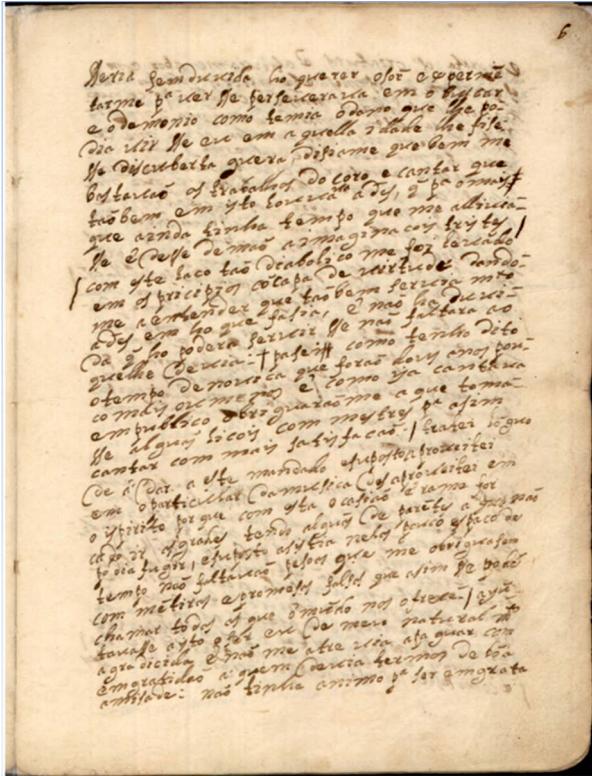 6
Seria sem duvida ho querer, o sor e experimẽ
tarme pa ver se perseverava em o buscar
e o demonio como temia o dano que lhe po
dia vir se eu em aquella idade lhe fise
se discuberta guera, disiame que bem me
bastavaõ os trabalhos do coro e cantar que
taõbem em isto louvava a ds, q pa o mais
que ainda tinha tempo que me allivia
se e desse de maõ a imaginacois tristes /
com este laço taõ diabolico me foi levado
em os pricipios cõ capa de virtude, dando
me a entender que taõbem servia mto
a ds em ho que fasia, e naõ ha duvi
da q ho podera servir se naõ faltara ao
que lhe devia: pasei como tenho dito
o tempo de noviça que foraõ dous anos pou
co mais ou menos e como ja cantava
em publico obriguaraõme a que toma
se alguãs licois com mestres pa asim
cantar com mais satisfacaõ / tratei loguo
de dar a este mandado e suposto aproveitei
em o particular da musica desaproveitei em
o ispirito por que com esta ocasiaõ
ir as grades, tendo alguãs de parẽtes a q naõ
podia fugir, e suposto asistia nelas pouco espaço de
tempo naõ faltavaõ pesoas que me obriguasem
com mẽtiras e promesas falsas que asim se podẽ
chamar todas as que o mũdo nos oferece / aju
tavase a isto o ser eu de meu natural mto
agradicida e naõ me atrevia a paguar com
emgratidaõ a quem devia termos de boa
amisade: naõ tinha animo pa ser emgrata